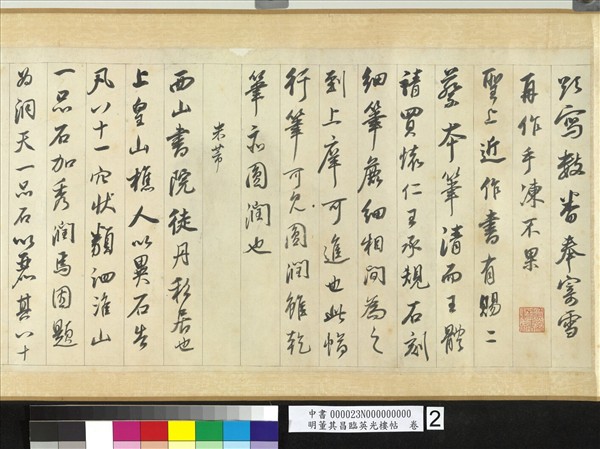 敢寫數番奉寄雪
再作手凍不果
聖上近作書有賜二
蔡本筆清而王體
請買懷仁王承規石刻
細筆麁細相間為之
到上庠可進也此幅
行筆可免圓潤雖乾
筆亦圓潤也
米芾
西山書院徒丹移居也
上皇山樵人以異石告
凡八十一穴狀類泗淮山
一品石加秀潤焉因題
為洞天一品石以麗其八十
中書 000023N000000000
明董其昌臨英光樓帖 卷
2